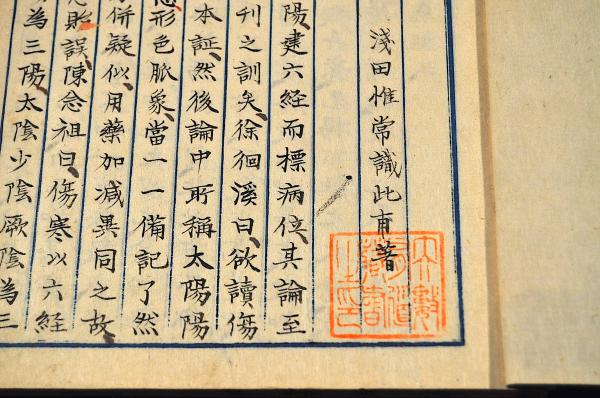 淺田惟常識此甫著
陽建六経而標病位其論至
刊之訓矣徐徊溪曰欲讀傷
本証然後論中所称太陽陽
形色脈象當一一備記了然
併疑似用藥加減異同之故
貽誤陳念祖曰傷寒以六経
為三陽太陰少陰厥陰為三